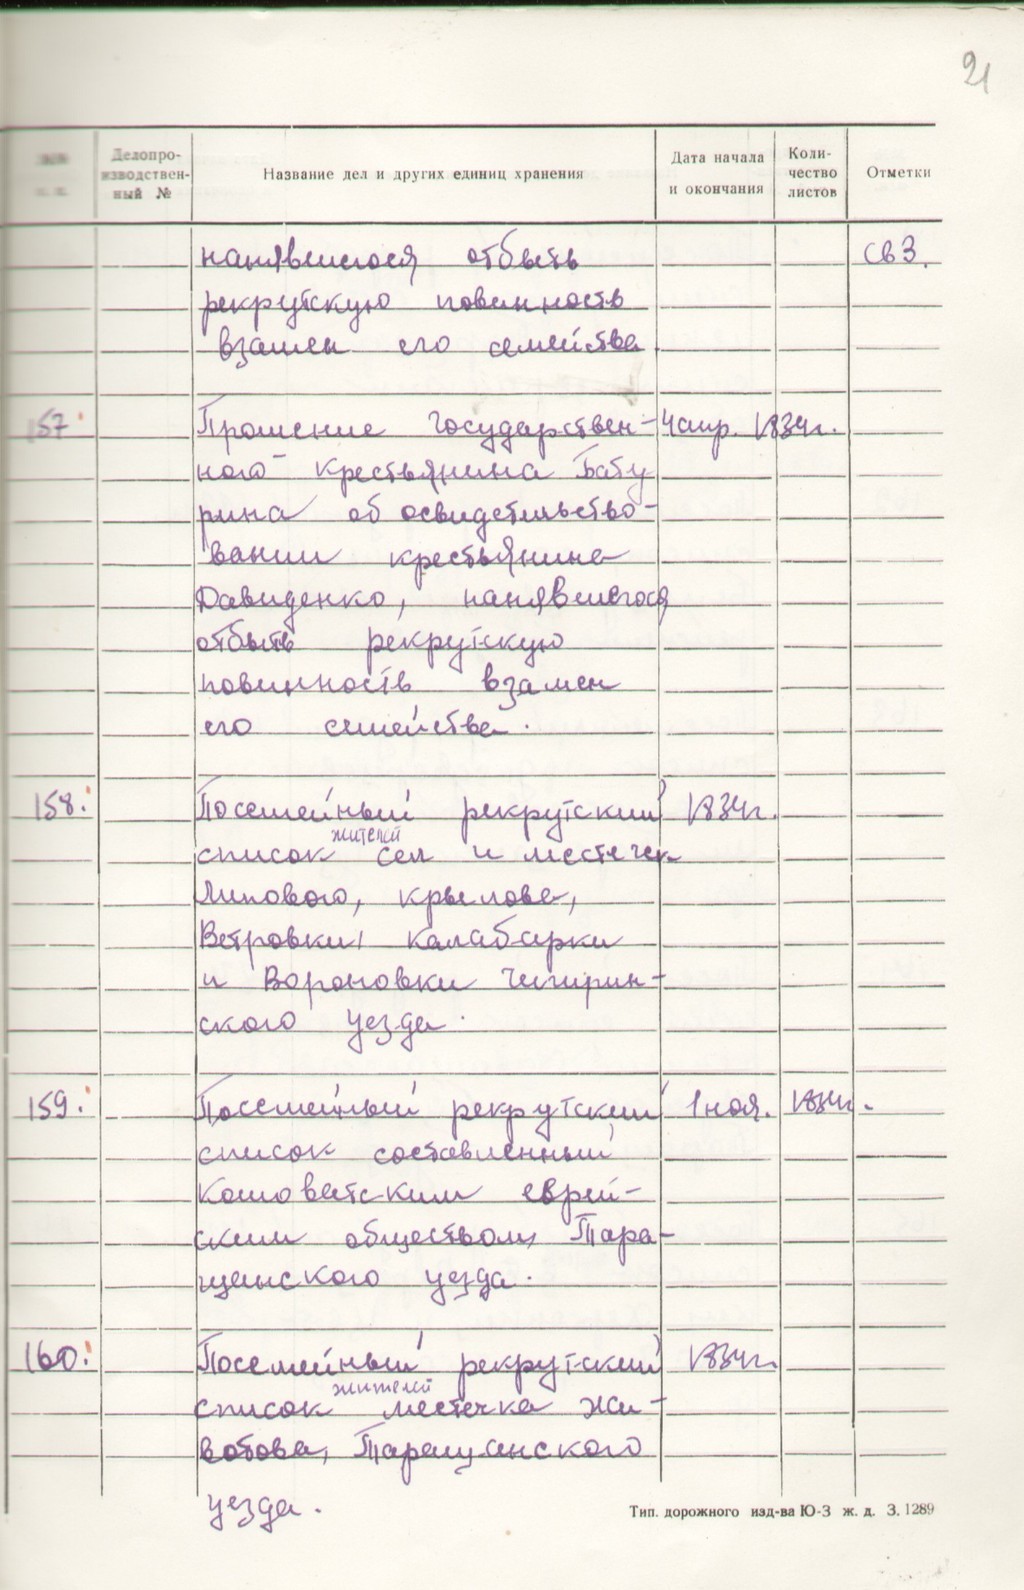 21
Делопро-
изводствен-
ный №
Название дел и других единиц хранения
Дата начала
и окончания
Коли-
чество
листов
Отметки
нанявшегося отбыть
св 3.
рекрутскую повинность
взамен его семейства
157
Прошение государствен-
4 апр. 1834г.
ного крестьянина Бату
рина об освидетельство-
вании крестьянина
Давиденко, нанявшегося
отбыть рекрутскую
повинность взамен
его семейства.
158.
Посемейный рекрутский
1834г.
жителей
список сел и местечек
Липового, Крылова,
Ветровки, Калабарки
и Вороновки Чигирин-
ского уезда.
159.
Посемейный рекрутский
1 ноя. 1834г.
список составленный
Кошоватским еврей-
ским обществом, Тара-
щанского уезда.
160.
Посемейный рекрутский
1834г.
жителей
список местечка Жи-
вотова, Таращанского
уезда.
Тип. дорожного изд-ва Ю-З ж. д. З. 1289